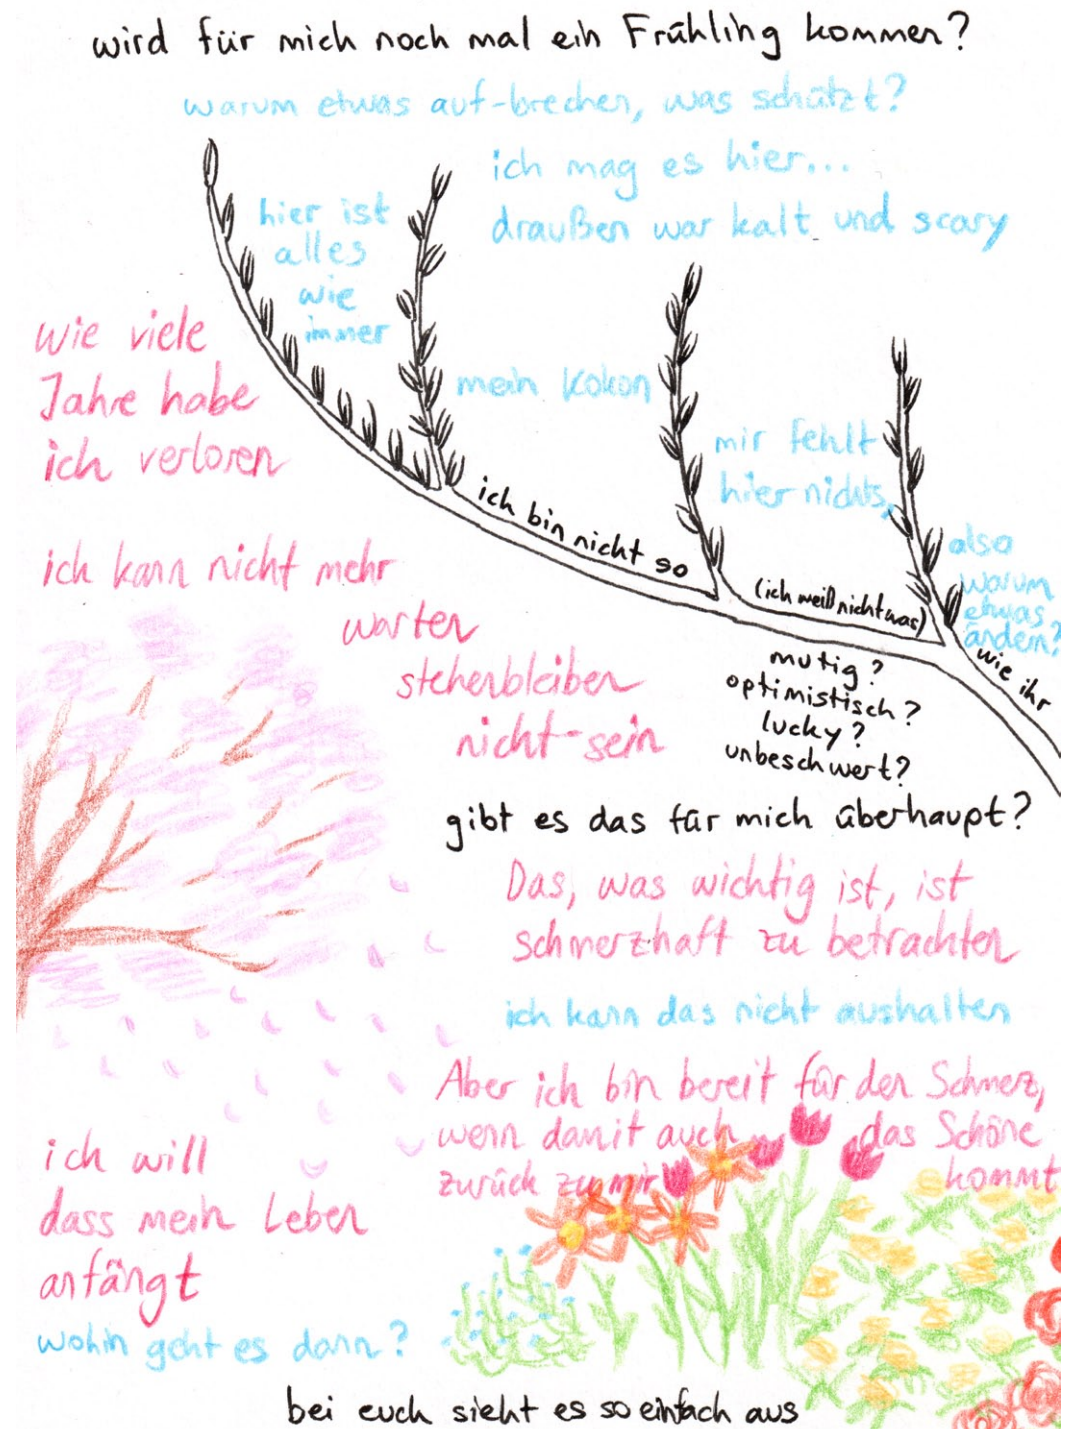 wird für mich noch mal ein Frühling kommen?
warum etwas auf-brechen, was schützt?
ich mag es hier...
draußen war kalt und scary
hier ist
alles
wie
immer
mein Kokon
mir fehlt
hier nichts,
also
warum
etwas
ändern?
wie viele
Jahre habe
ich verloren
ich bin nicht so
(ich weiß nicht was)
wie ihr
mutig?
optimistisch?
lucky?
unbeschwert?
ich kann nicht mehr
warten
stehenbleiben
nicht-sein
gibt es das für mich überhaupt?
Das, was wichtig ist, ist
schmerzhaft zu betrachten
ich kann das nicht aushalten
Aber ich bin bereit für den Schmerz,
wenn damit auch das Schöne
zurück zu mir kommt
ich will
dass mein Leben
anfängt
wohin geht es dann?
bei euch sieht es so einfach aus